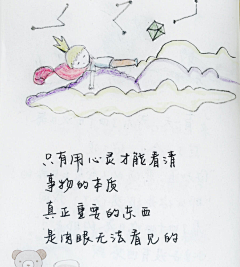 只有用心灵才能看清
事物的本质
真正重要的东西
是肉眼无法看见的